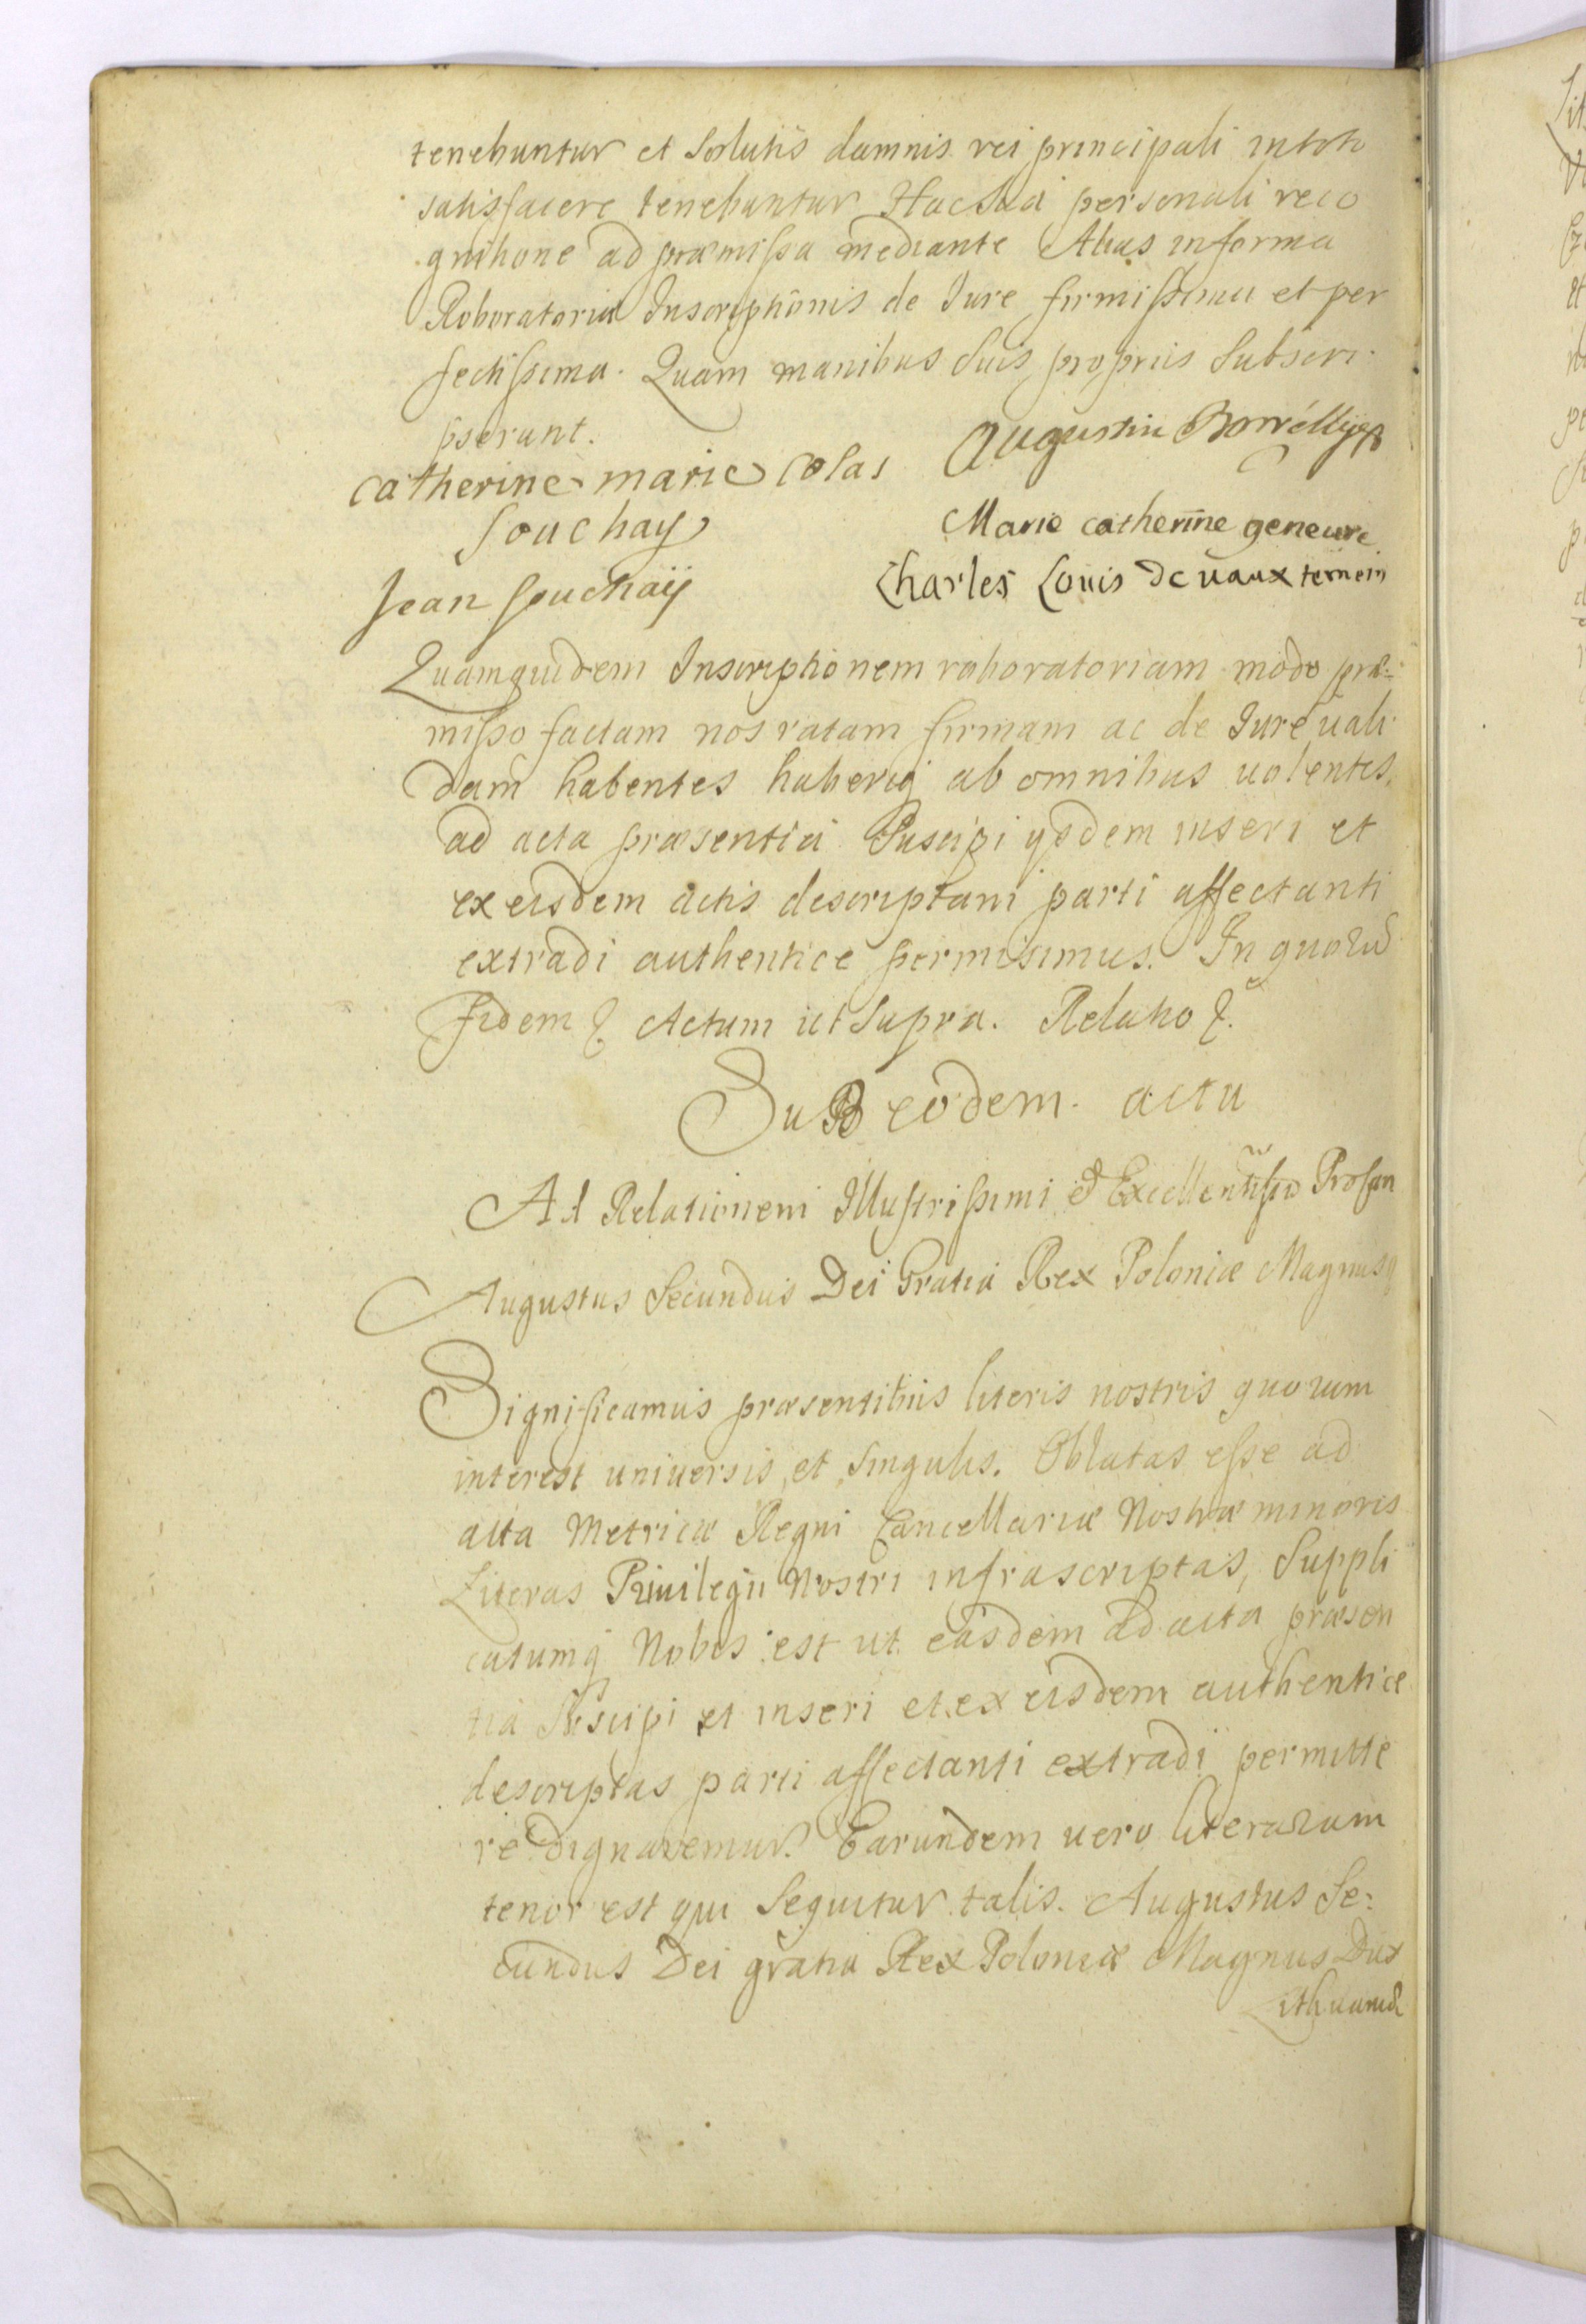 tenebuntur et Solutis damnis rei principali in toto
satisfacere tenebuntur Hac Sua personali reco
gnitione ad præmissa mediante Alias in forma
Roboratoria Inscriptionis de Jure firmissima et per
fectissima. Quam manibus Suis propriis Subscri
pserunt.
Augustin
catherine marie colas
Souchay
Marie catherine geneure
Jean souchaÿ
Charles Louis De vaux temein
Quamquidem Inscriptionem roboratoriam modo præ-
misso factam nos ratam firmam ac de Jure vali
dam habentes haberiq ab omnibus volentes,
ad acta præsentia Suscipi ysdem inseri et
ex eisdem actis descriptam parti affectanti
extradi authentice permisimus. In quorũ
fidem & Actum ut Supra. Relatio &.
SuB eodem actu
Ad Relationem Illustrissimi &
Augustus Secundus Dei Gratia Rex Poloniæ Magnus
Significamus præsentibus literis nostris quorum
interest universis, et Singulis. Oblatas esse ad
acta Metricæ Regni Cancellariæ Nostræ minoris
Literas Privilegii Nostri infrascriptas, Suppli
catumq Nobis est ut easdem ad acta præsen
tia Suscipi et inseri et ex eisdem authentice
descriptas parti affectanti extradi permitte
re dignaremur. Earundem vero literarum
tenor est qui Sequitur talis. Augustus Se-
cundus Dei gratia Rex Poloniæ Magnus Dux
Lithuaniæ